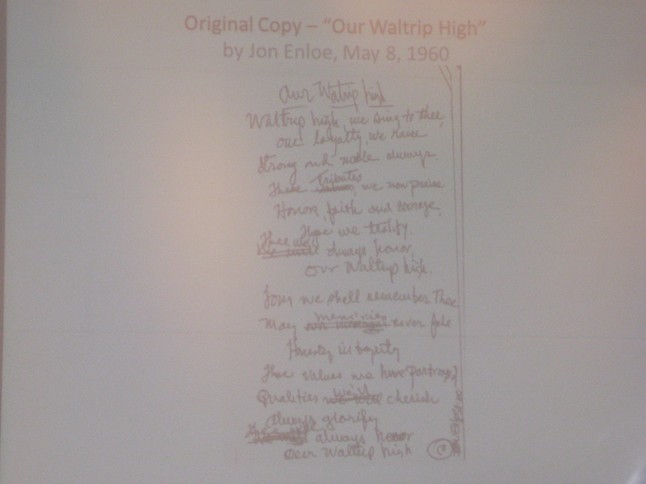 Original Copy – "Our Waltrip High"
by Jon Enloe, May 8, 1960
Our Waltrip high
Waltrip high, we sing to thee,
our loyalty, we
Strong and noble always.
These Tributes, we now praise
Honor, faith and courage,
These we testify.
always honor,
our Waltrip high.
we shall remember Thee
May memories never fade
Honesty
These values we have
Qualities cherish
Always glorify
always honor
our Waltrip high